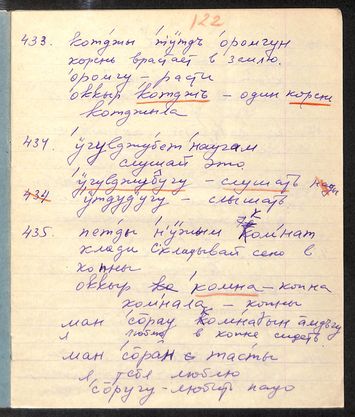 122
433. котджы тӱтдъ оромгун
корень врастай в землю.
оромгу – расти
оккыр котджъ – один корень
котджыла
434. ӱгулджубет наугам
слушай это
ӱгулджубугу – слушать
ӱтдудугу – слышать
435. петды нӱжым комнат
клади складывай сено в
копны
оккыр комна – копна
комнала – копны
ман со̄рау комнаɣын амдыгу
я люблю в копне сидеть
ман со̄ран с тасты
я тебя люблю
со̄ругу – любить надо